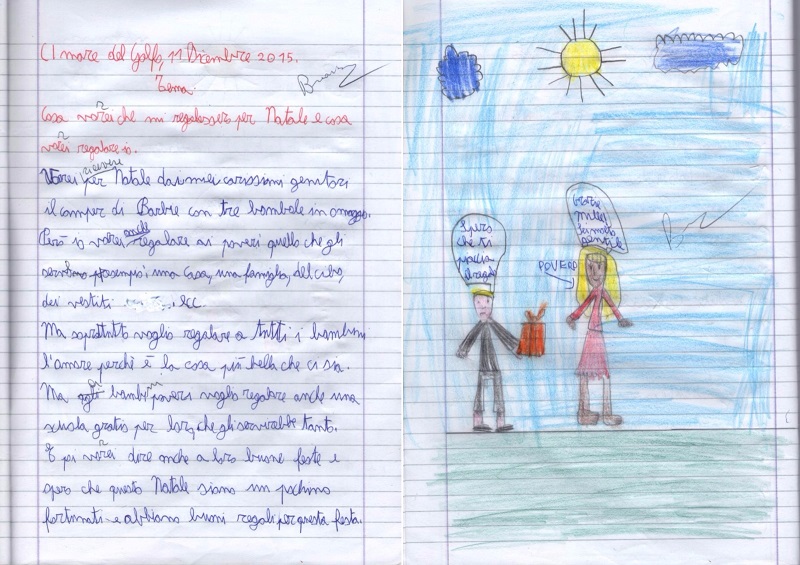 Cl mare del Golfo, 11 Dicembre 2015.
Tema.
Cosa vorei che mi regalassero per Natale e cosa
vorei regalare io.
ricevere
Vorei per Natale dai miei carissimi genitori
il camper di Barbie con tre bambole in omaggio.
Però io vorei anche regalare ai poveri quello che gli
una casa, una famiglia, del cibo,
dei vestiti ecc.
Ma soprattutto voglio regalare a tutti i bambini
l'amore perchè è la cosa più bella che ci sia.
Ma bambini poveri voglio regalare anche una
scuola gratis per loro, che gli servirebbe tanto.
E poi vorei dire anche a loro buone feste e
spero che questo Natale siano un pochino
fortunati e abbiano buoni regali per questa festa.
Spero
che ti
piaccia
il regalo
Grazie
mille
sei molto
gentile
POVERO